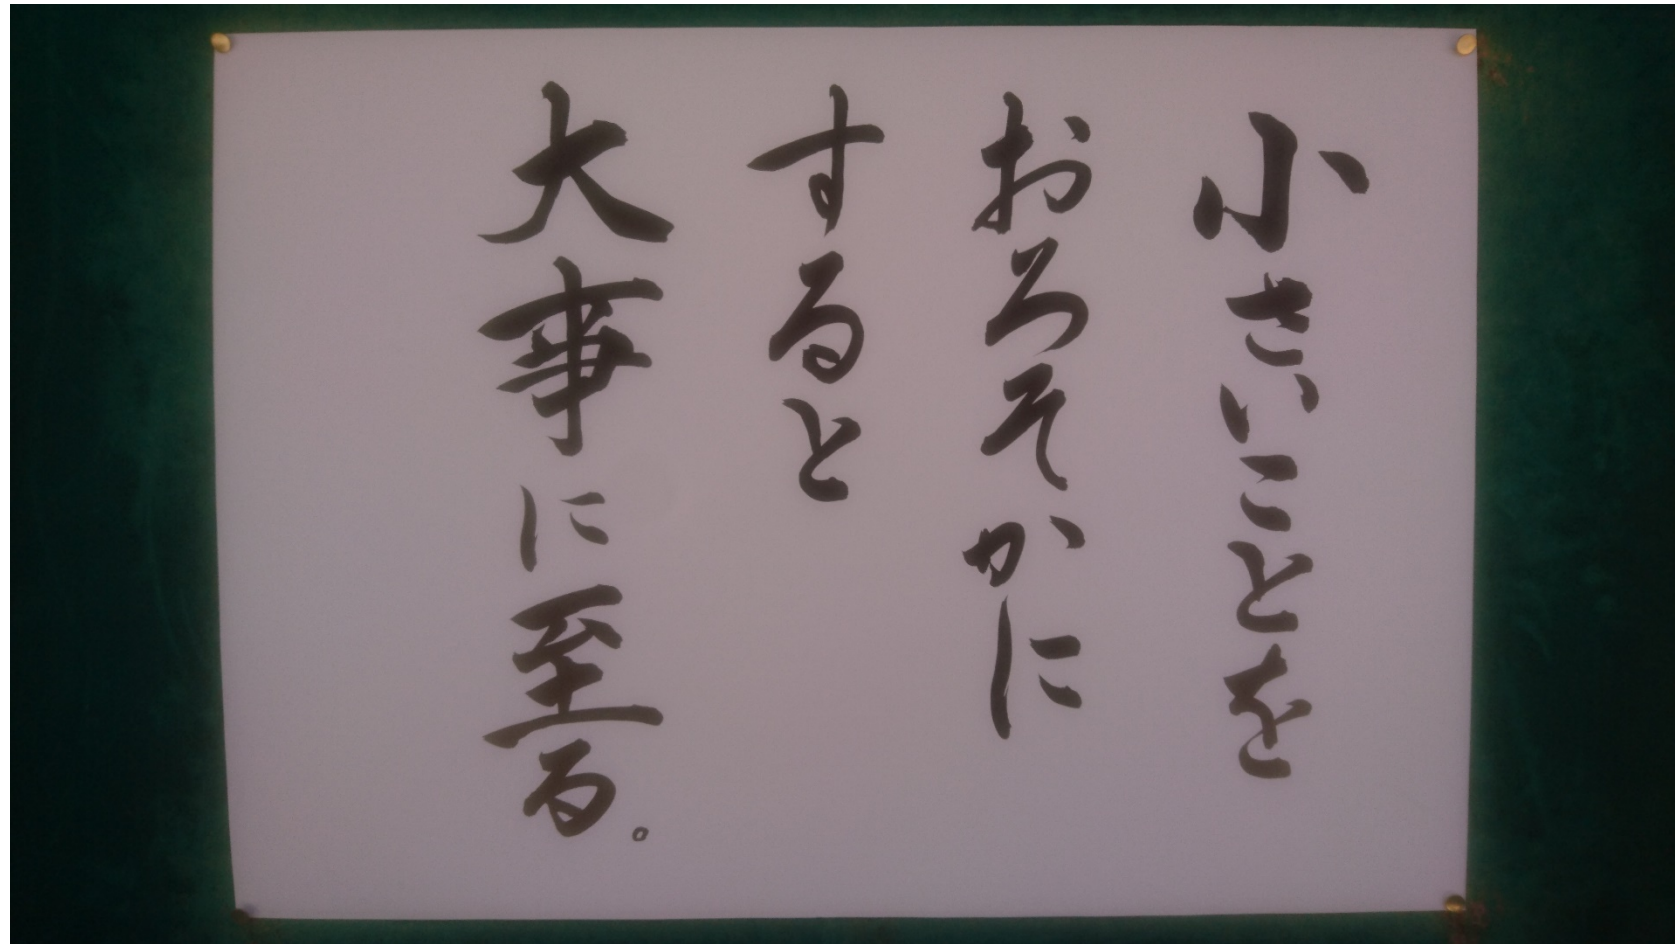 小さいことを
おろそかに
すると
大事に至る。